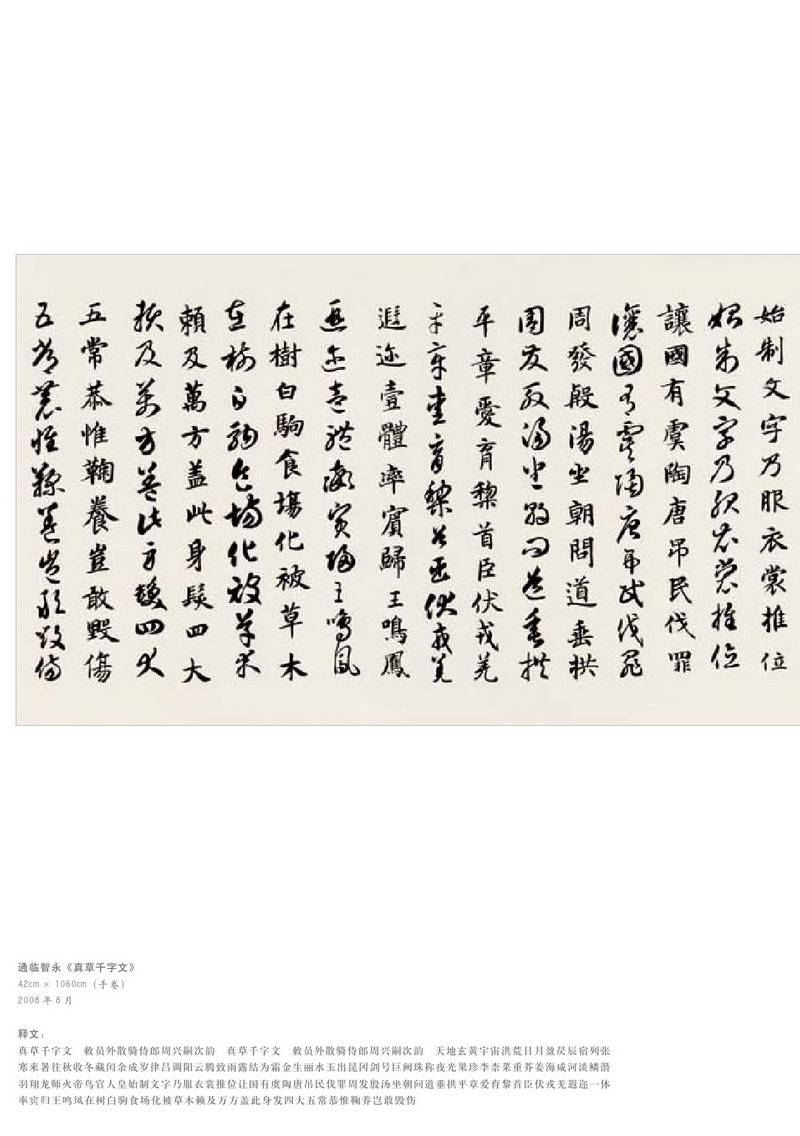 始制文字乃服衣裳推位
始制文字乃服衣裳推位
讓國有虞陶唐吊民伐罪
讓國有虞陶唐吊民伐罪
周發殷湯坐朝問道垂拱
周發殷湯坐朝問道垂拱
平章愛育黎首臣伏戎羌
平章愛育黎首臣伏戎羌
遐迩壹體率賓歸王鳴鳳
遐迩壹體率賓歸王鳴鳳
在樹白駒食場化被草木
在樹白駒食場化被草木
賴及萬方蓋此身髮四大
賴及萬方蓋此身髮四大
五常恭惟鞠養豈敢毀傷
五常恭惟鞠養豈敢毀傷
通临智永《真草千字文》
42cm × 1060cm（手卷）
2008 年 8 月
释文：
真草千字文　敕员外散骑侍郎周兴嗣次韵　真草千字文　敕员外散骑侍郎周兴嗣次韵　天地玄黄宇宙洪荒日月盈昃辰宿列张
寒来暑往秋收冬藏闰余成岁律吕调阳云腾致雨露结为霜金生丽水玉出昆冈剑号巨阙珠称夜光果珍李柰菜重芥姜海咸河淡鳞潜
羽翔龙师火帝鸟官人皇始制文字乃服衣裳推位让国有虞陶唐吊民伐罪周发殷汤坐朝问道垂拱平章爱育黎首臣伏戎羌遐迩一体
率宾归王鸣凤在树白驹食场化被草木赖及万方盖此身发四大五常恭惟鞠养岂敢毁伤